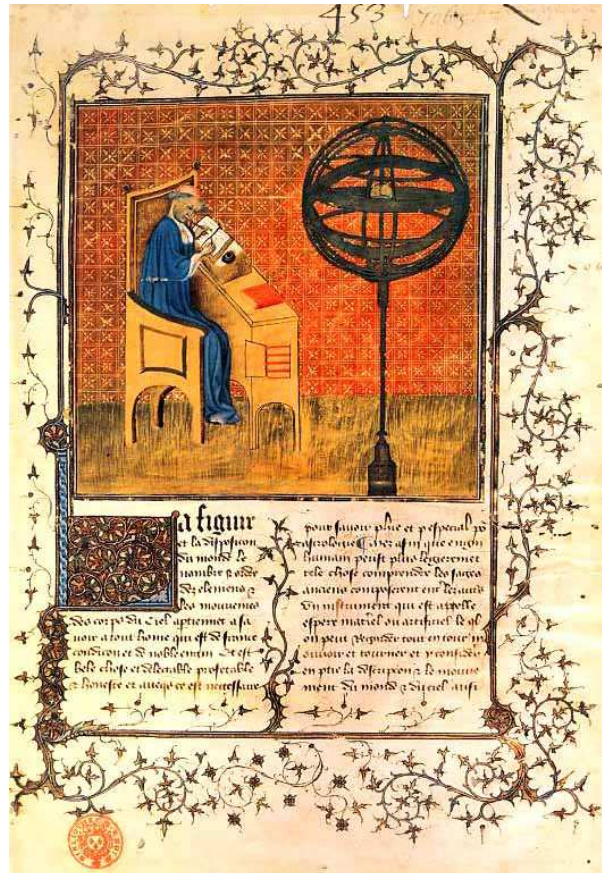 453
La figure
et la disposicion
du monde le
nombre & ordre
des elemens &
les mouvemens
des corps du Ciel aptiennet a sa
voir a tout home qui est de france
condicion et de noble engin Et est
bele chose et delectable profetable
& honeste et avecqs ce est necessaire
pour savoir plus et p especial po
astrologie afin que engin
humain puist plus legierement
tele chose comprendre les sages
anciens composerent
un instrument qui est appelle
espere materiel ou artificiel le ql
on peut regarder tout entour
mouvoir et tourner et y considerer
en ptie la descripcion & le mouve
ment du monde & du ciel ausi